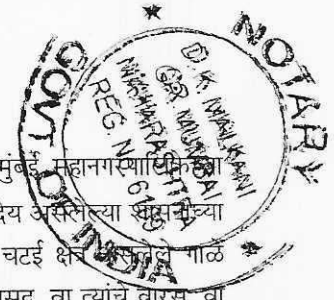 NOTARY
GOVT OF INDIA
D.K.
GR. MUMBAI
MAHARASHTRA
REG N
मुंबई महानगरपालिकेच्या
देय असलेल्या शासनाच्या
चटई क्षेत्र असलेले गाळे
वा त्यांचे वारस वा